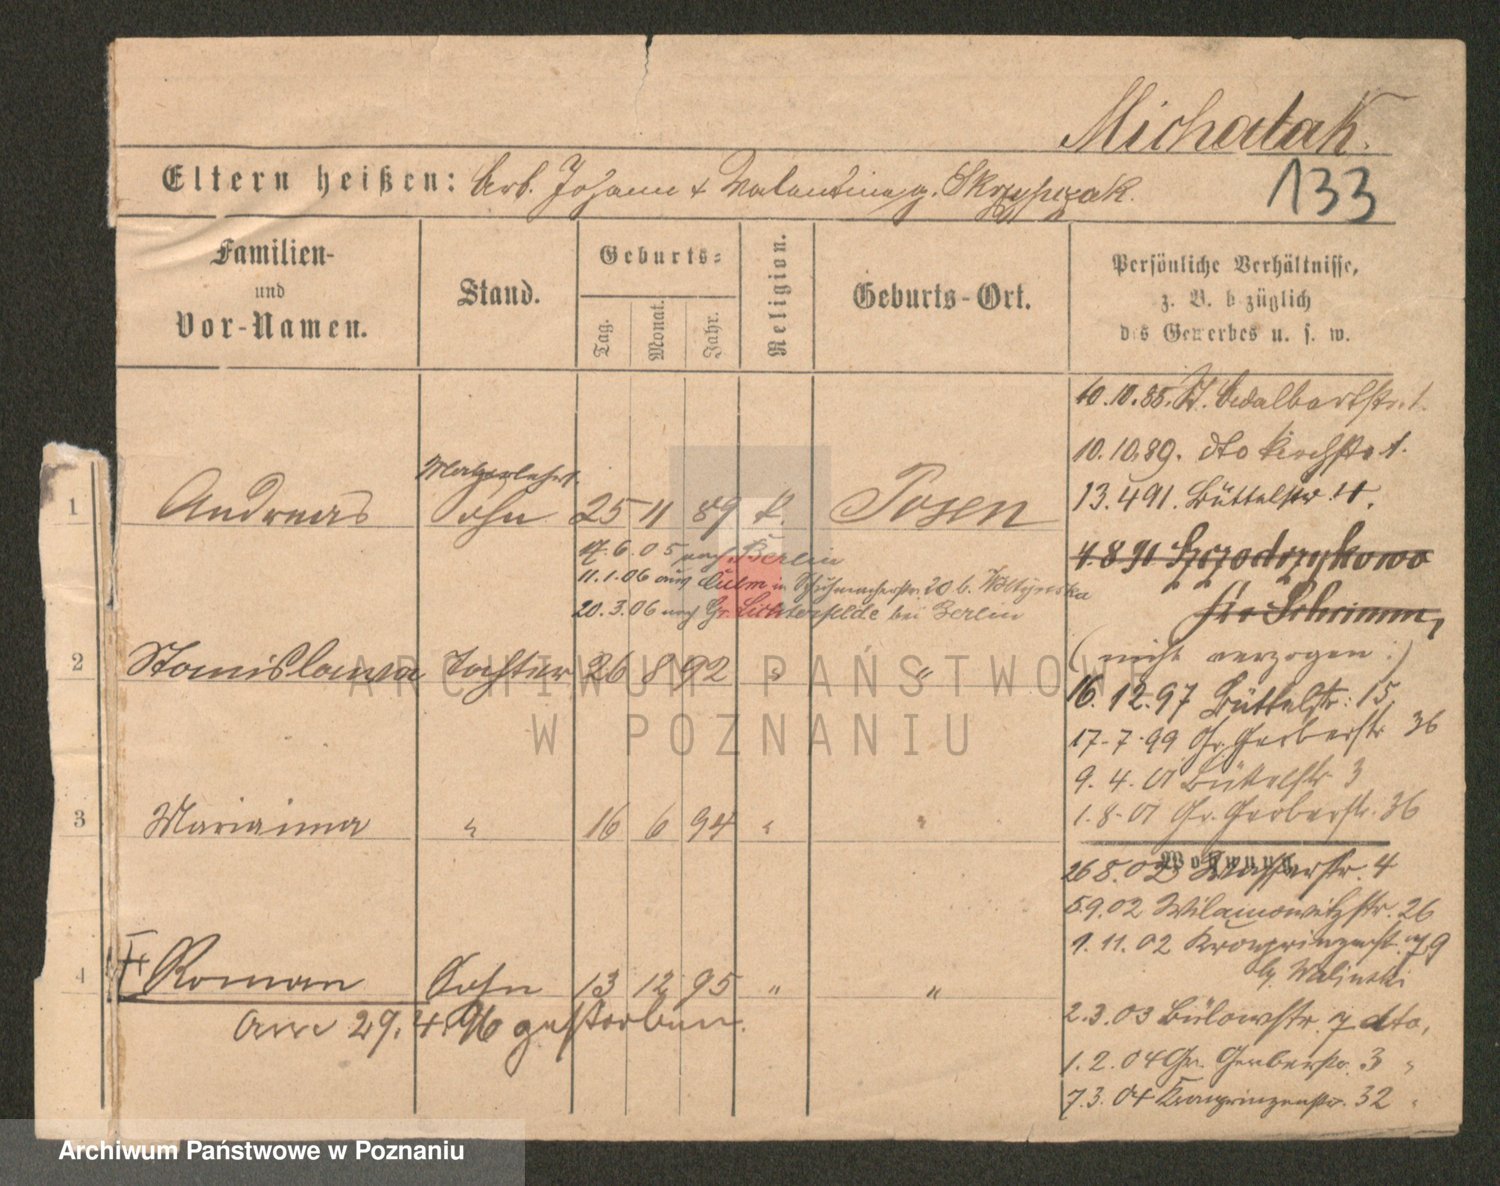 Michalak.
133
Eltern heißen: Arb. Johann + Valentina g. Skrzypczak.
Familien-
und
Vor-Namen.
Stand.
Geburts-
Tag.
Monat.
Jahr.
Religion.
Geburts-Ort.
Persönliche Verhältnisse,
z. B. bezüglich
des Gewerbes u. s. w.
10.10.88. St. Adalbertstr. 1.
10.10.89. dto Kirchstr. 1.
13.4.91. Büttelstr 11.
1 Andreas Sohn 25 11 89 k. Posen
17.6.05 nach Berlin
11.1.06 aus Culm in Schuhmacherstr. 20 b.
20.3.06 nach Gr. Lichterfelde bei Berlin
4.8.91 Szczodrzykowo
Kr. Schrimm,
(nicht verzogen.)
2 Stanislawa Tochter 26 8 92 " "
16.12.97 Büttelstr: 15
17-7-99 Gr. Gerberstr 36
9.4.01 Büttelstr 3
1.8.01 Gr. Gerberstr. 36
3 Marianna " 16 6 94 " "
Wohnung.
26 8.02 Wasserstr. 4
5.9.02 Wilamowitzstr. 26
1.11.02 Kronprinzenst. 79
b. Walinski
4 Roman Sohn 13 12 95 " "
am 29.4.96 gestorben.
2.3.03 Bülowstr. 7 dto,
1.2.04 Gr. Gerberstr. 3 "
7.3.04 Kronprinzenstr. 32 "
ARCHIWUM PAŃSTWOWE
W POZNANIU
Archiwum Państwowe w Poznaniu